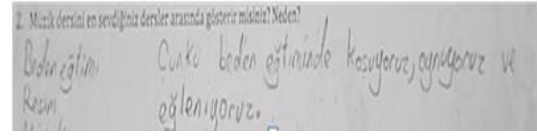 2. Müzik dersini en sevdiğiniz dersler arasında gösterir misiniz? Neden?
Beden eğitimi Çünkü beden eğtiminde koşuyoruz, oynuyoruz ve
Resim eğleniyoruz.